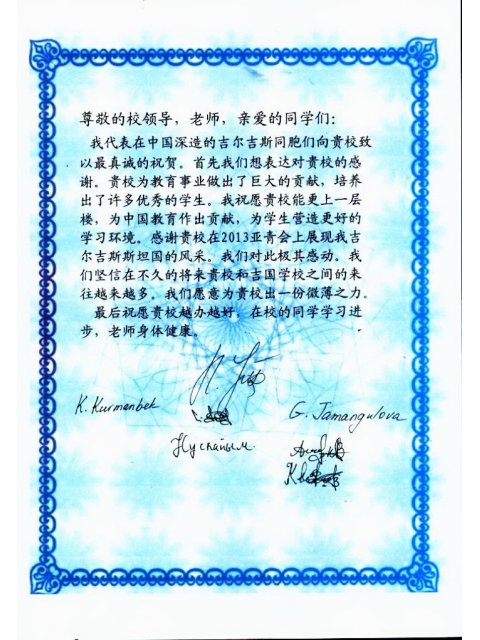 尊敬的校领导，老师，亲爱的同学们：
我代表在中国深造的吉尔吉斯同胞们向贵校致
以最真诚的祝贺。首先我们想表达对贵校的感
谢。贵校为教育事业做出了巨大的贡献，培养
出了许多优秀的学生。我祝愿贵校能更上一层
楼，为中国教育作出贡献，为学生营造更好的
学习环境。感谢贵校在2013亚青会上展现我吉
尔吉斯斯坦国的风采。我们对此极其感动。我
们坚信在不久的将来贵校和吉国学校之间的来
往越来越多。我们愿意为贵校出一份微薄之力。
最后祝愿贵校越办越好，在校的同学学习进
步，老师身体健康。
K. Kurmanbek
G. Jamangulova
Нуспайым.